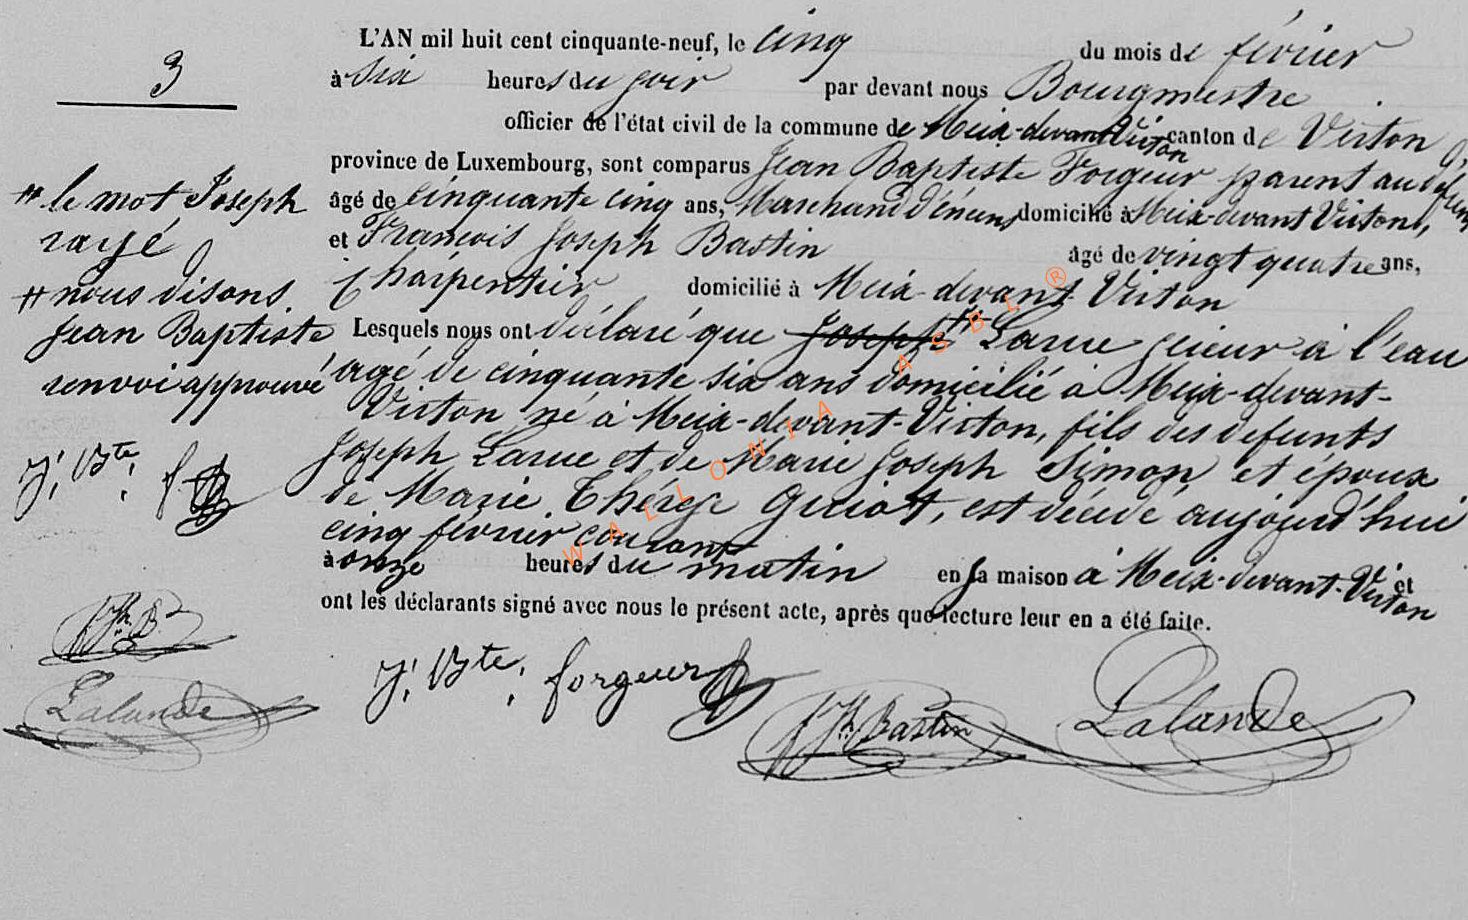 3
L'AN mil huit cent cinquante-neuf, le cinq du mois de février
à six heures du soir par devant nous Bourgmestre
officier de l'état civil de la commune de Meix-devant Virton canton de Virton
province de Luxembourg, sont comparus Jean Baptiste Forgeur parent au défunt
âgé de cinquante cinq ans, Marchand domicilié à Meix-devant Virton,
et François Joseph Bastin âgé de vingt quatre ans,
Charpentier domicilié à Meix-devant Virton
Lesquels nous ont déclaré que Joseph # Larue scieur à l'eau
âgé de cinquante six ans domicilié à Meix-devant-
Virton né à Meix-devant-Virton, fils des defunts
Joseph Larue et de Marie Joseph Simon et époux
de Marie Thérèse Guiot, est décédé aujourd'hui
cinq février courant
à onze heures du matin en sa maison à Meix-devant-Virton et
ont les déclarants signé avec nous le présent acte, après que lecture leur en a été faite.
# le mot Joseph
rayé
# nous disons
Jean Baptiste
renvoi approuvé
J. Bte. f
f Jh B.
Lalande
J. Bte. forgeur
f Jh Bastin
Lalande
WALLONIA ASBL ®